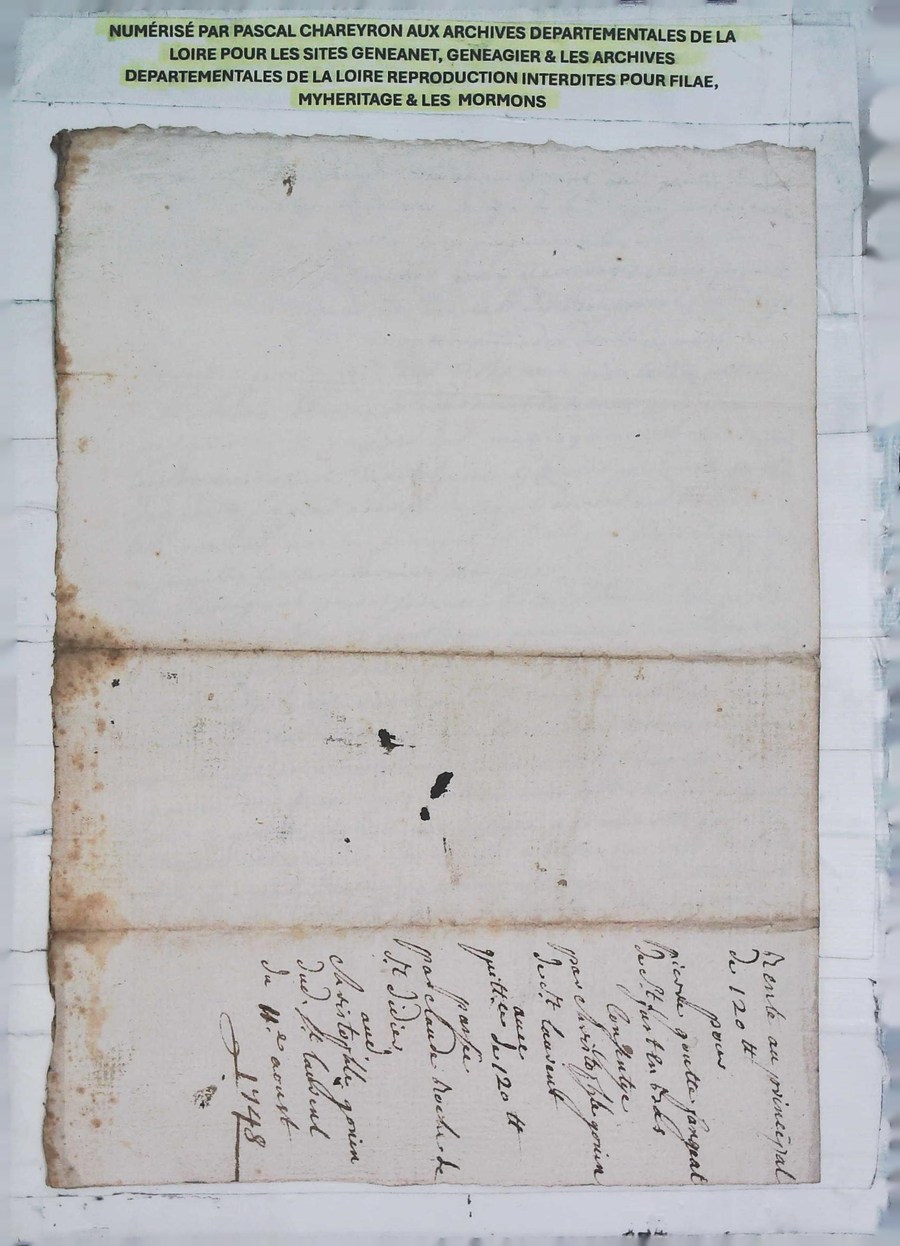 NUMÉRISÉ PAR PASCAL CHAREYRON AUX ARCHIVES DEPARTEMENTALES DE LA
LOIRE POUR LES SITES GENEANET, GENEAGIER & LES ARCHIVES
DEPARTEMENTALES DE LA LOIRE REPRODUCTION INTERDITES POUR FILAE,
MYHERITAGE & LES MORMONS
Rente au principal
de 120 ₶
pour
pierre goutte fangeat
de St just en
Consentye
par christophle gonin
de St laurent
avec
quittce de 120 ₶
passée
par claude Roche de
St didier
aud.
christophle gonin
dud. St laurent
du 11e aoust
1748